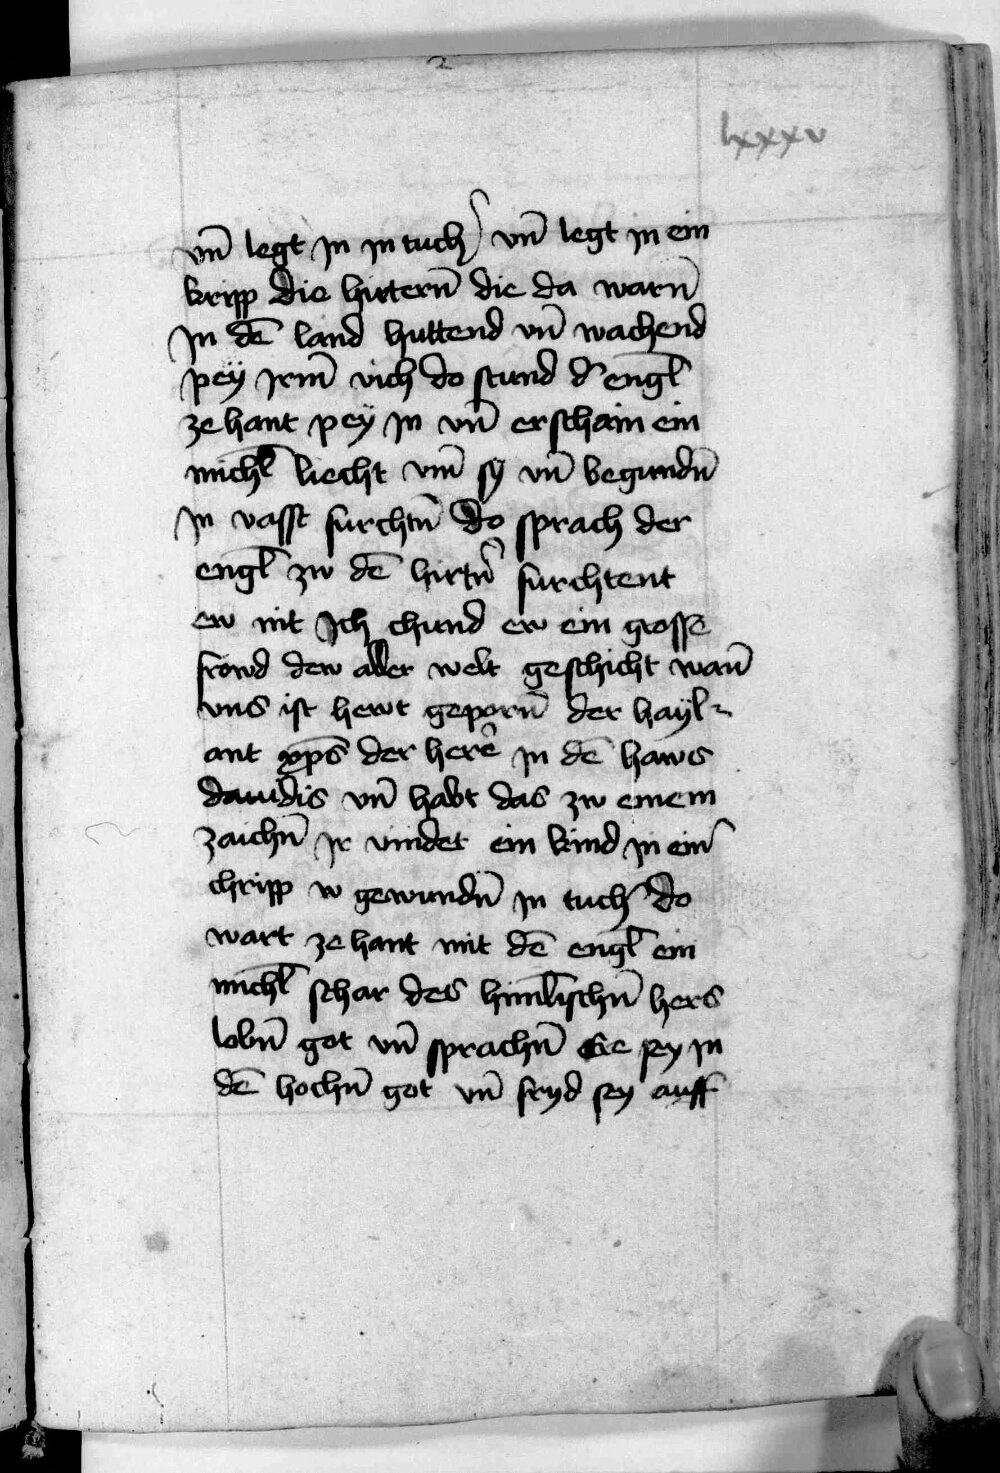 lxxxv
vn̄ legt jn jn tuch̕ vn̄ legt jn ein
kripp die hirtern̄ die da warn̄
jn dē land huttend vn̄ wachend
pey jrm̄ vich do stund d̕ engl̄
ze hant pey jn vn̄ erschain ein
michl̄ liecht vm̄ sy vn̄ begundn̄
jn vasst furchtn̄ do sprach der
engl̄ zw dē hirtn̄ furchtent
ew nit jch chund ew ein grosse
frowd dew aller welt geschicht wan̄
vns ist hewt geporn̄ der hayl-
ant xp̄s der herē jn dē haws
dauidis vn̄ habt das zw einem
zaichn̄ jr vindet ein kind jn ein̕
chripp w gewundn̄ jn tuch̕ do
wart ze hant mit dē engl̄ ein
michl̄ schar des himl̄ischn̄ hers
lobn̄ got vn̄ sprachn̄ Ere sey jn
dē hochn̄ got vn̄ fryd sey auff